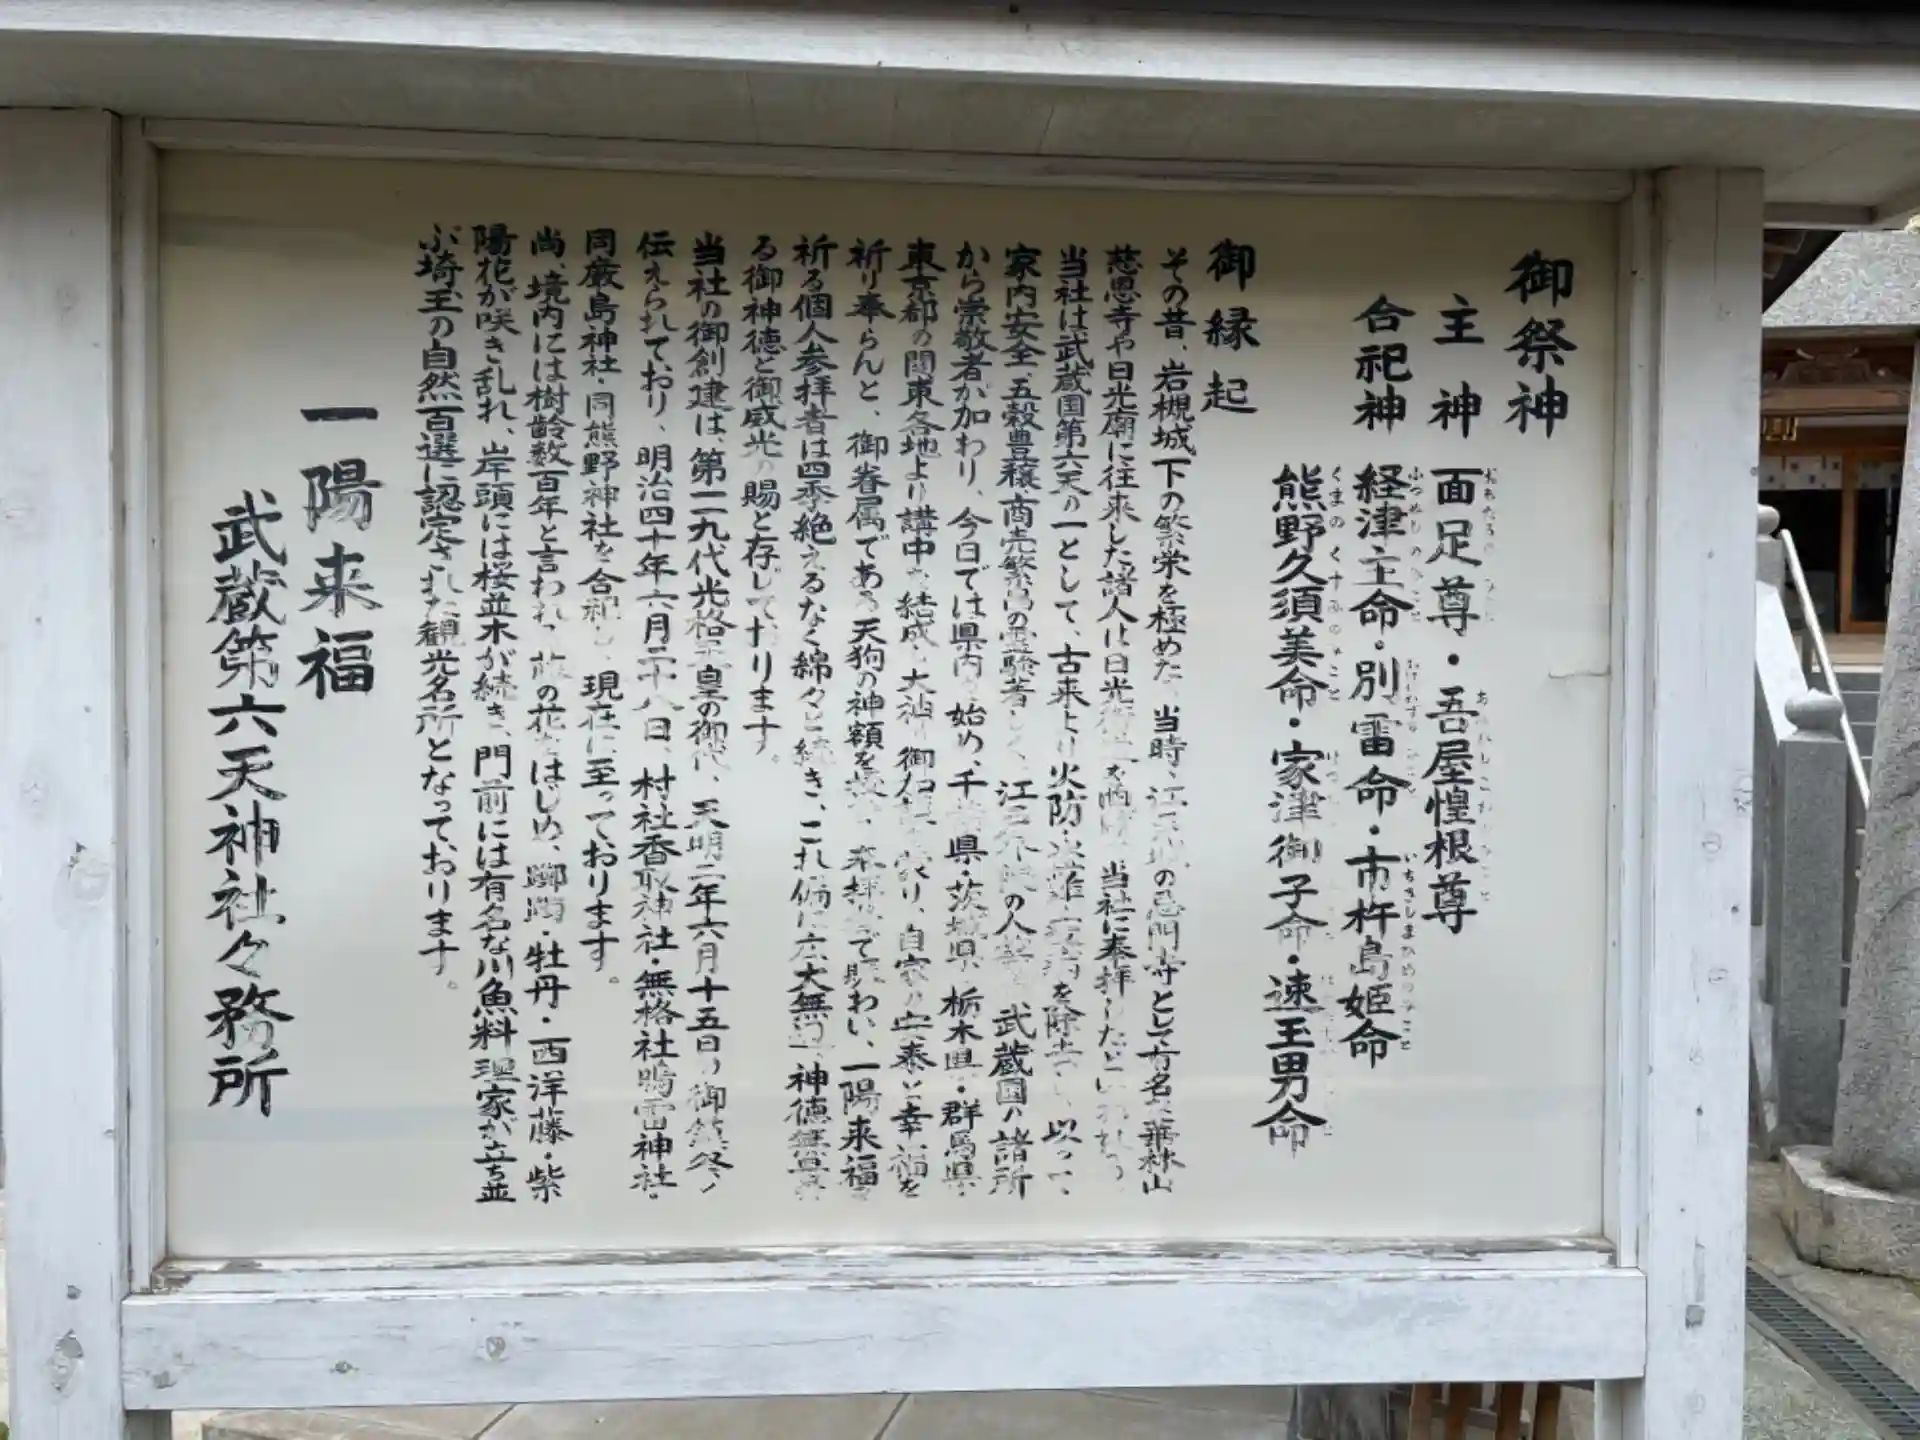 御祭神
主神 面足尊・吾屋惶根尊
合祀神 経津主命・別雷命・市杵島姫命
熊野久須美命・家津御子命・速玉男命
御縁起
その昔、岩槻城下の繁栄を極めた当時、江戸城の鬼門寺として有名な華林山
慈恩寺や日光廟に往来した諸人は日光街道を 当社に奉拝したといわれ
当社は武蔵国第六天の一として、古来より火防・盗難・疫病を除去し、以って、
家内安全、五穀豊穣、商売繁昌の霊験著しく、江戸 の人 武蔵国の諸所
から崇敬者が加わり、今日では県内を始め、千葉県・茨城県・栃木県・群馬県・
東京都の関東各地より講中を結成し大神の御 蒙り、自家の安泰と幸福を
祈り奉らんと、御眷属である天狗の神額を 奉拝 て賑わい、一陽来福を
祈る個人参拝者は四季絶えるなく綿々と続き、これ偏に広大無辺、神徳無
る御神徳と御威光の賜と存じております。
当社の御創建は、第一一九代光格天皇の御代、天明二年六月十五日の御鎮
伝えられており、明治四十年六月二十八日、村社香取神社・無格社鳴雷神社・
同厳島神社・同熊野神社を合祀し、現在に至っております。
尚、境内には樹齢数百年と言われ 藤の花をはじめ、躑躅・牡丹・西洋藤・柴
陽花が咲き乱れ、岸頭には桜並木が続き、門前には有名な川魚料理家が立ち並
ぶ埼玉の自然百選に認定された観光名所となっております。
一陽来福
武蔵第六天神社々務所